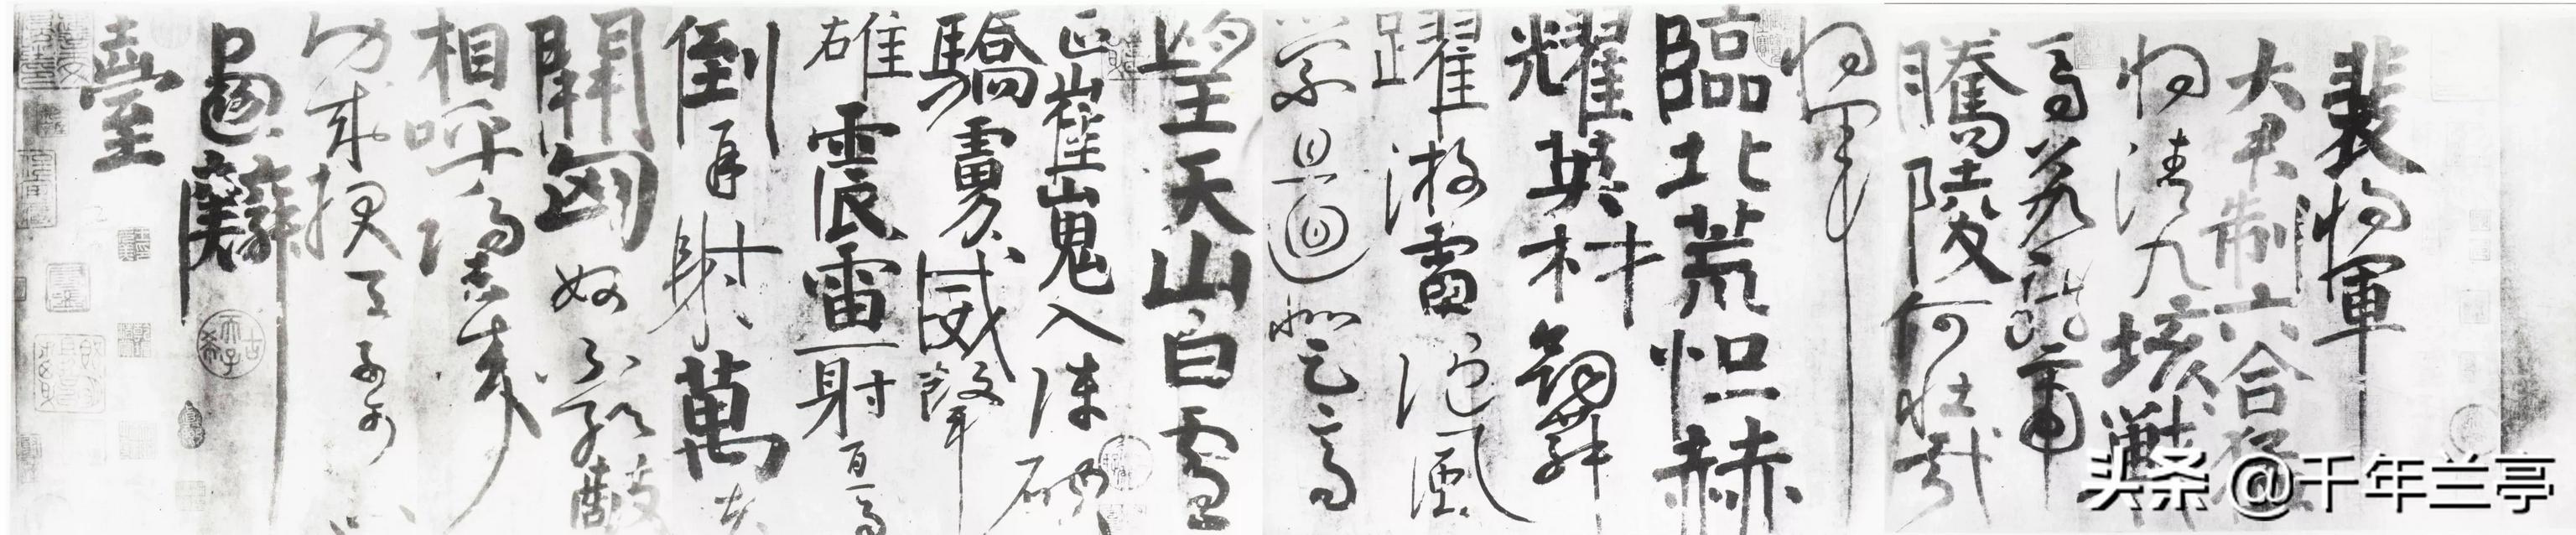 裴將軍
大君制六合猛
將清九垓戰
馬若龍虎
騰陵何壯哉
將軍
臨北荒烜赫
耀英材劍舞
躍游雷隨風
縈且迴登高
望天山白雪
正崔嵬入陣破
驕虜威聲
雄震雷一射百馬
倒再射萬夫
開匈奴不敢敵
相呼歸去來
功成報天子可以
畫麟
臺
头条 @千年兰亭